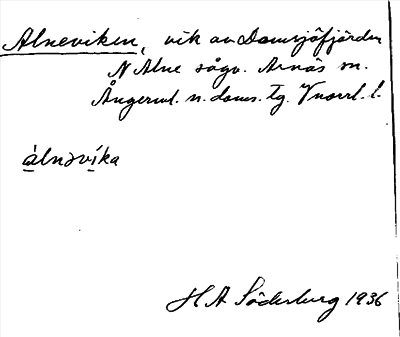 Alneviken, vik av Domsjöfjärden
N Alne sågv. Arnäs sn.
Ångerml. n. doms. tg. Vnorrl. l.
álnəvíka
H A Söderberg 1936